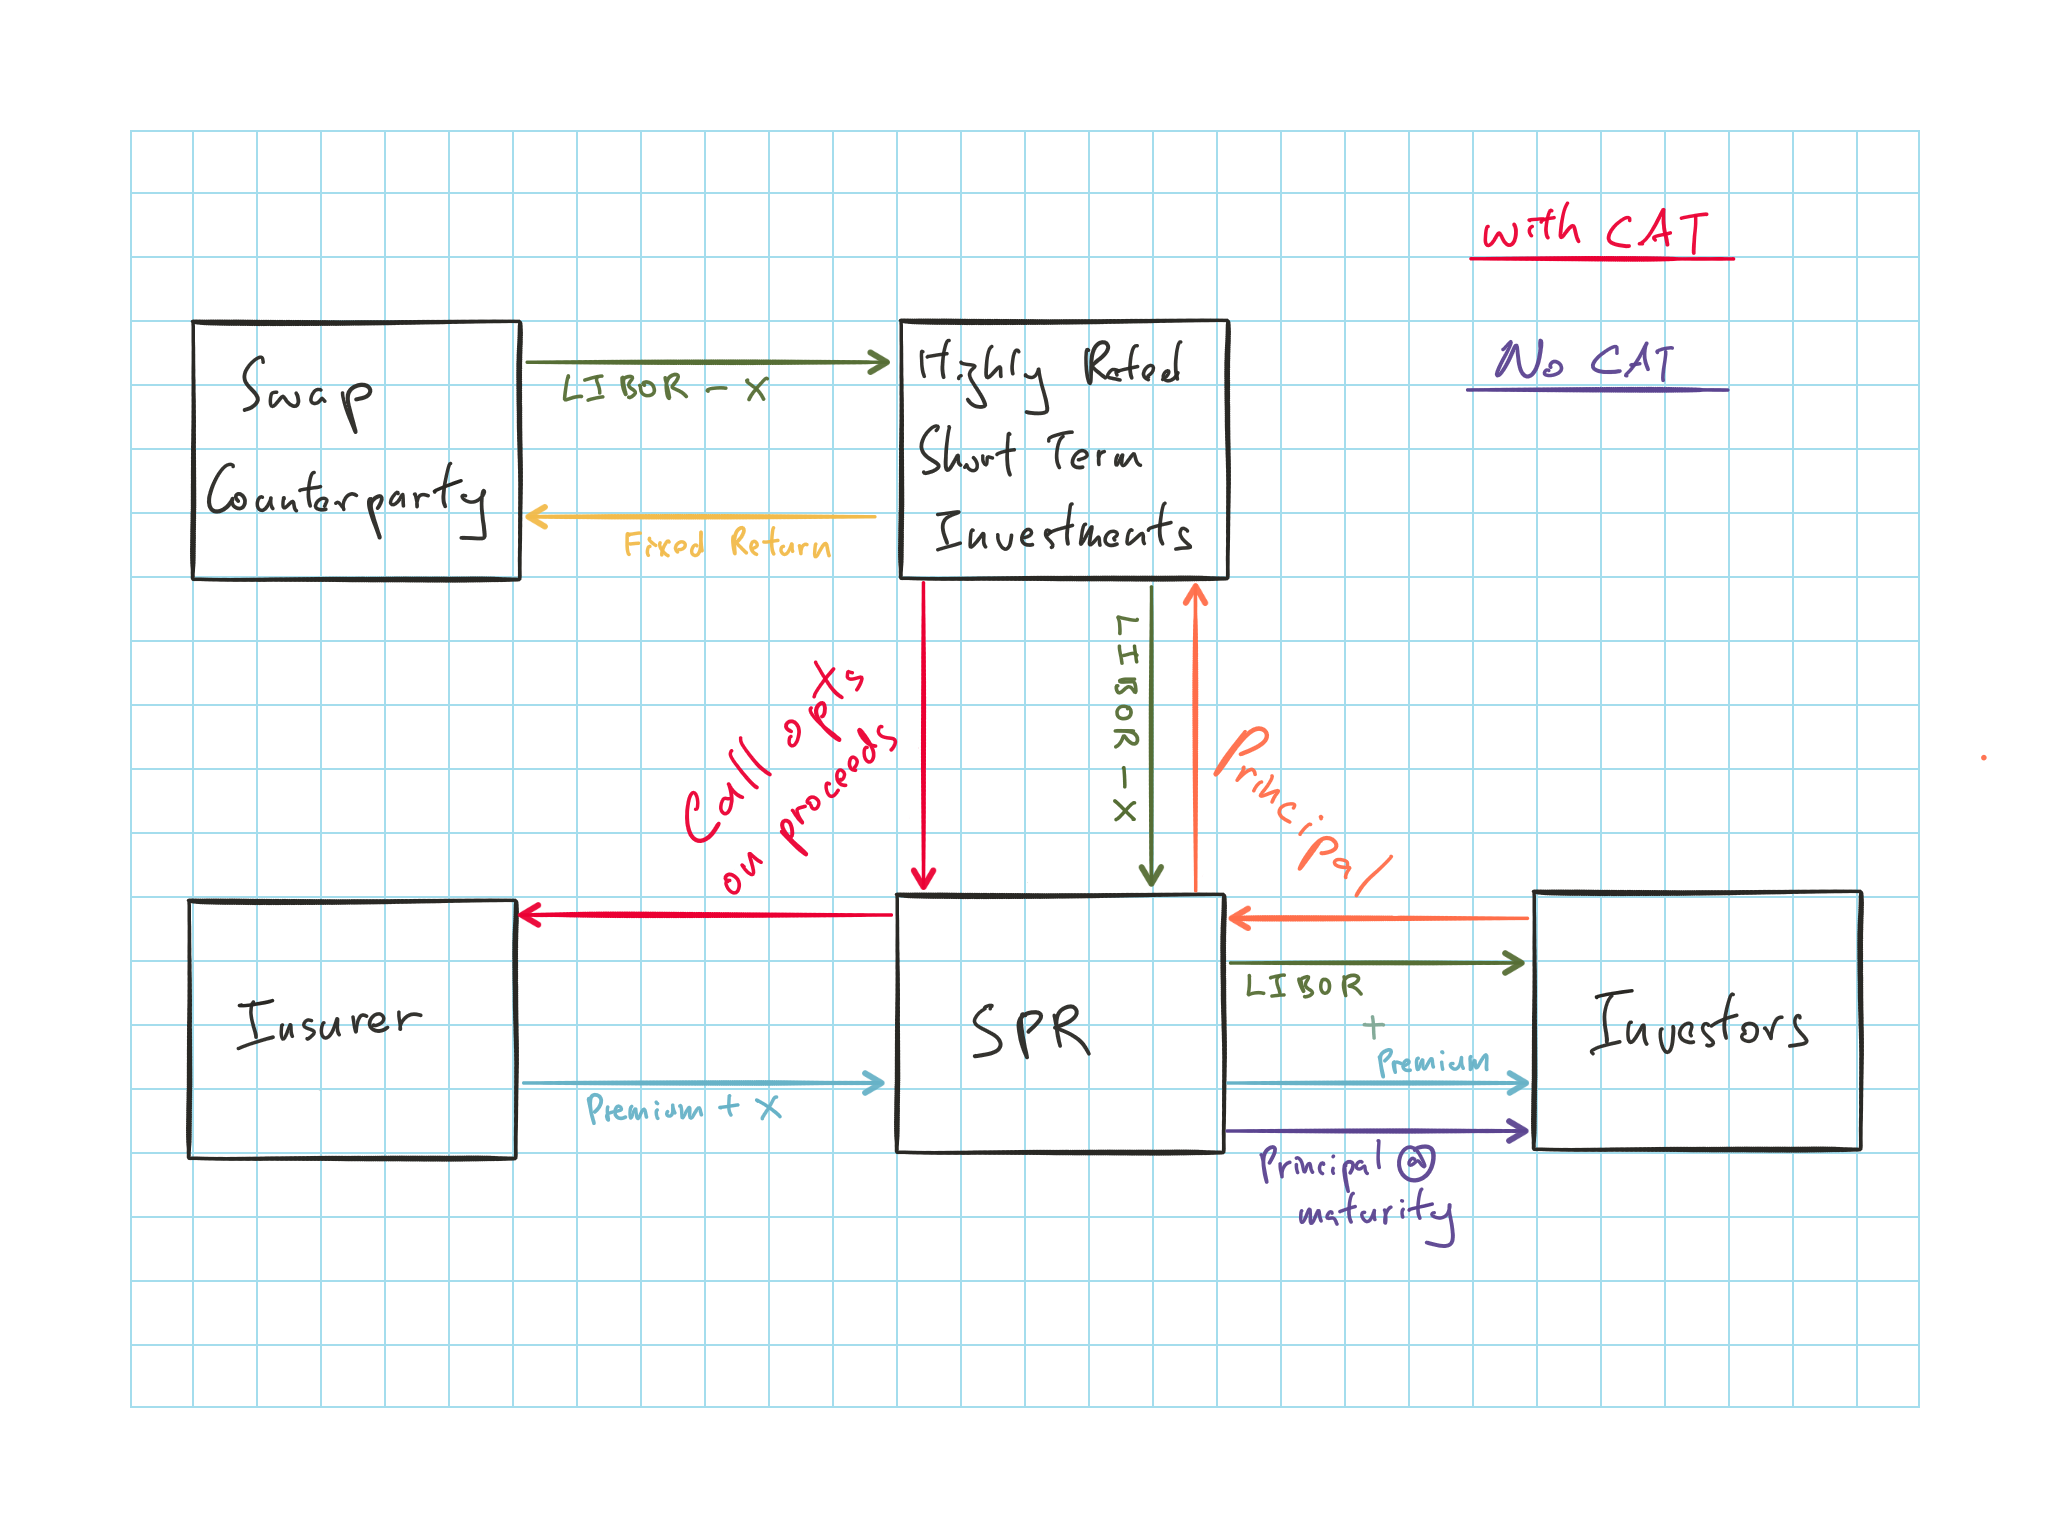 with CAT
No CAT
Swap
Counterparty
LIBOR - X
Fixed Return
Highly Rated
Short Term
Investments
Call opts
on proceeds
LIBOR - X
Principal
Insurer
Premium + X
SPR
LIBOR
+
Premium
Principal @
maturity
Investors